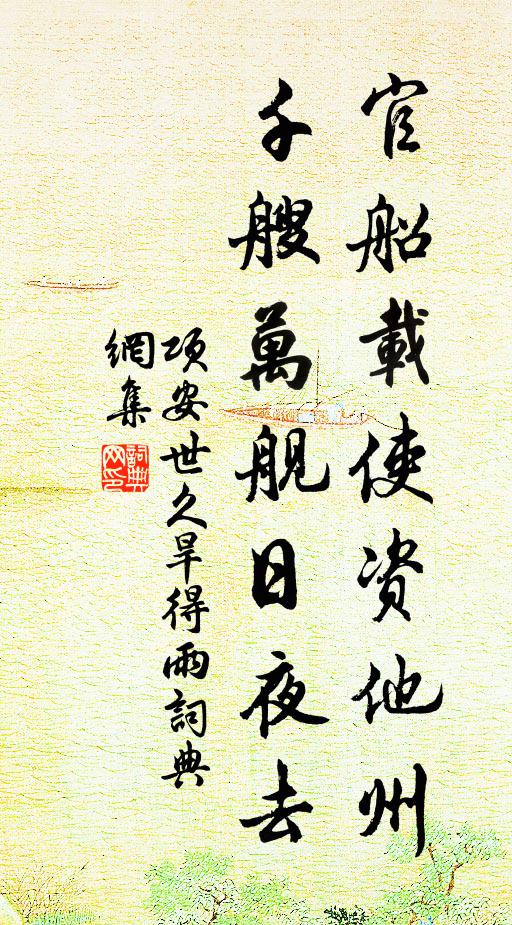 官船載使資他州
千艘萬舰日夜去
項安世久旱得雨詞典
網集
詞典
网印